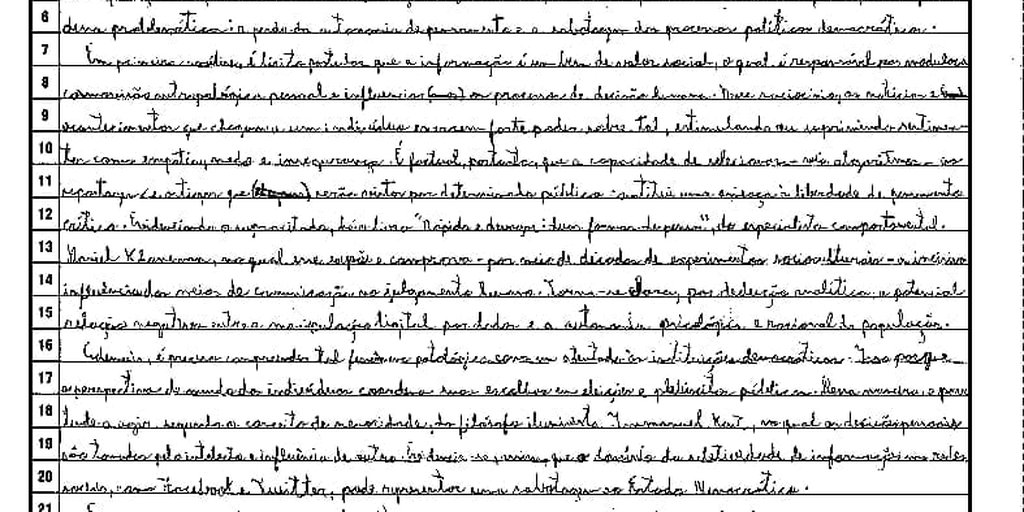 6 dessa problemática: a perda da autonomia de pensamento e a sabotagem dos processos políticos democráticos.
7 Em primeira análise, é lícito postular que a informação é um bem de valor social, o qual é responsável por modular a
8 cosmovisão antropológica pessoal e influenciar os processos de decisão humana. Nesse raciocínio, as notícias e
9 acontecimentos que chegam a um indivíduo exercem forte poder sobre tal, estimulando ou suprimindo sentimen-
10 tos como empatia, medo e insegurança. É factual, portanto, que a capacidade de selecionar - via algoritmos - as
11 reportagens e artigos que serão vistos por determinado público constitui uma ameaça à liberdade de pensamento
12 crítico. Evidenciando o supracitado, há o livro "Rápido e devagar: duas formas de pensar", do especialista comportamental
13 Daniel Khaneman, no qual esse expõe e comprova - por meio de décadas de experimentos socioculturais - a incisiva
14 influência dos meios de comunicação no julgamento humano. Torna-se claro, por dedução analítica, a potencial
15 relação negativa entre a manipulação digital por dados e a autonomia psicológica e racional da população.
16 Ademais, é preciso compreender tal fenômeno patológico como um atentado às instituições democráticas. Isso porque
17 a perspectiva de mundo dos indivíduos coordena suas escolhas em eleições e plebiscitos públicos. Dessa maneira, o povo
18 tende a agir segundo o conceito de menoridade, do filósofo iluminista Immanuel Kant, no qual as decisões pessoais
19 são tomadas pelo intelecto e influência de outro. Evidencia-se, assim, que o domínio da seletividade de informações nas redes
20 sociais, como Facebook e Twitter, pode representar uma sabotagem ao Estado Democrático.
21